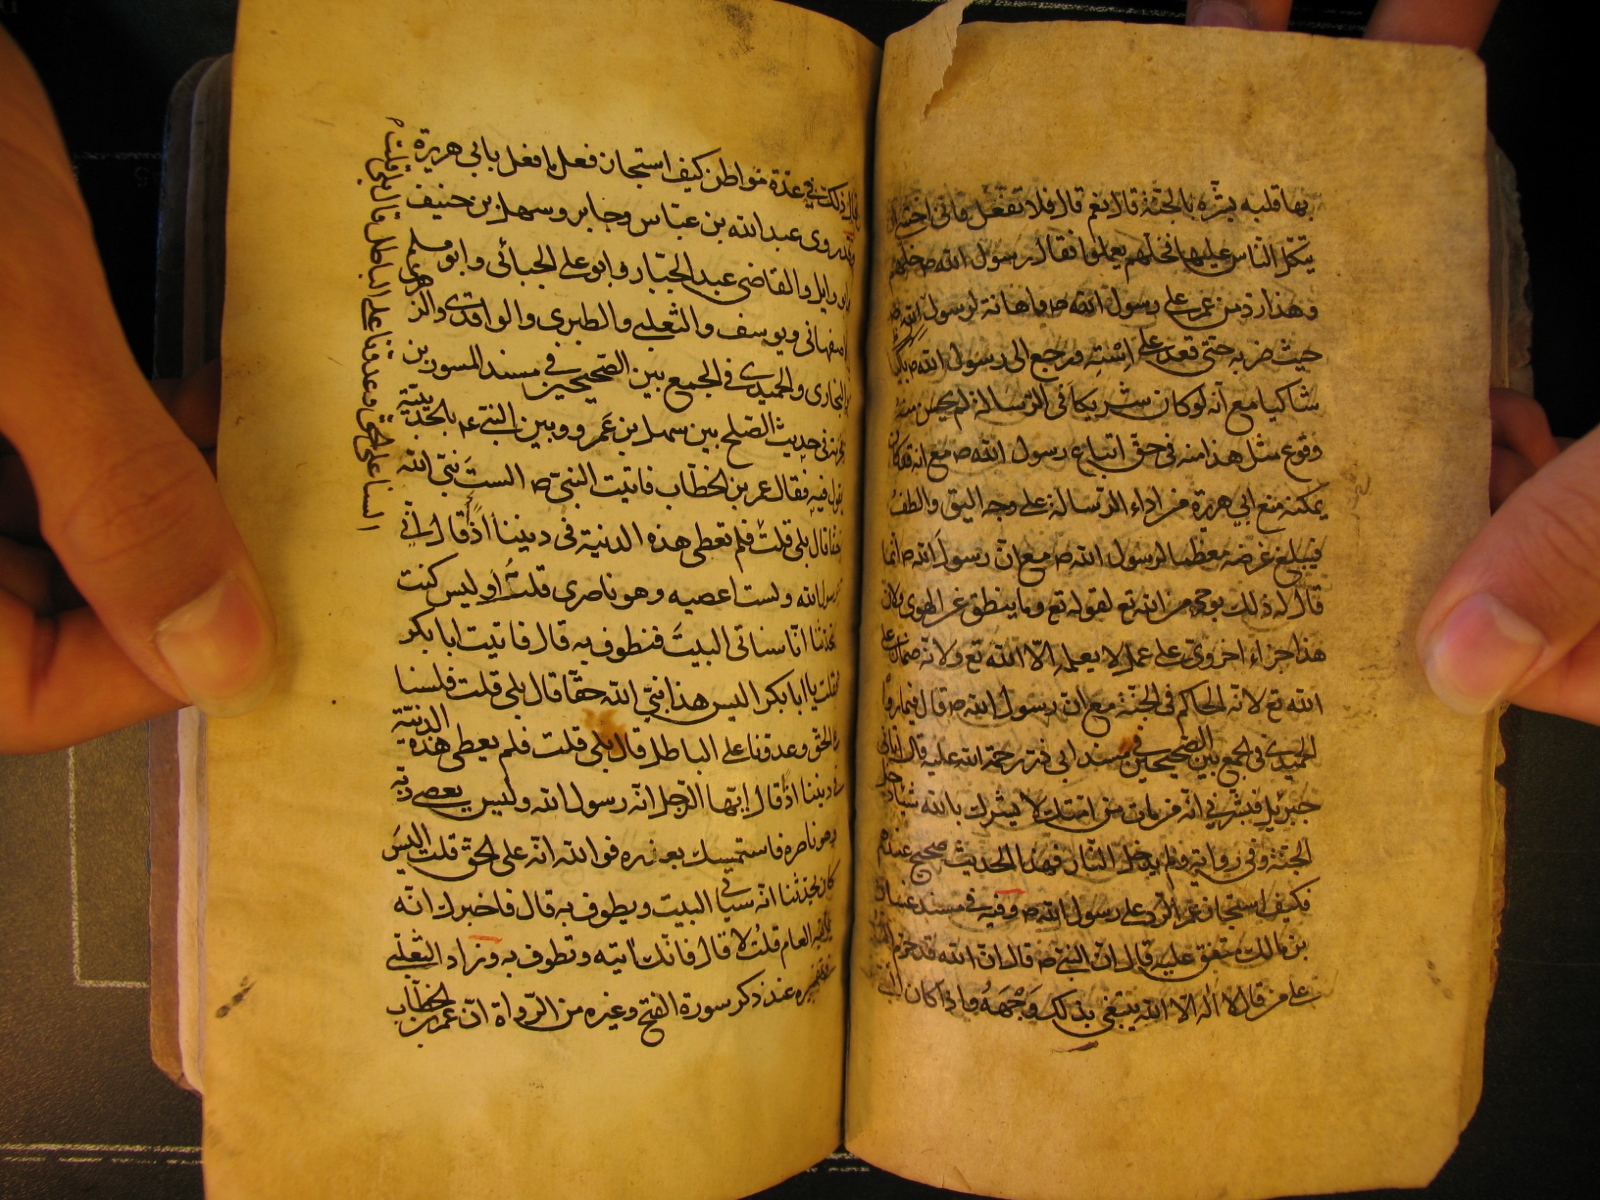 بها قلبه بشّره بالجنّة قال نعم قال فلا تفعل فانى اخشى ان
يتكل الناس عليها فخلهم يعملوا فقال رسول الله ص خلهم
وهذا رد من عمر على رسول الله ص واهانة لرسول الله ص
حيث ضربه حتى قعد على استه فرجع الى رسول الله ص باكيا
شاكيا مع انه لو كان شريكا فى الرسالة لم يحسن منه
وقوع مثل هذا منه فى حق اتباع رسول الله ص مع انه قد كان
يمكنه منع ابي هريرة من اداء الرسالة على وجه اليق والطف
فيبلغ غرضه معظما لرسول الله ص مع ان رسول الله ص انما
قال له ذلك بوحى من الله تع لقوله تع وما ينطق عن الهوى ولان
هذا جزاء اخروى على عمل لا يعلمه الا الله تع ولانه ضمان على
الله تع لانه الحاكم فى الجنّة مع ان رسول الله ص قال فيما رواه
الحميدى فى الجمع بين الصحيحين فى مسند ابى ذر رحمة الله عليه قال اتانى
جبرئيل فبشّرني انّه من مات من امتك لا يشرك بالله شيئا دخل
الجنّة وفى رواية فلم يدخل النار فهذا الحديث صحيح عندهم
فكيف استجاز عمر الرد على رسول الله ص وفيه فى مسند غسان
بن مالك متفق عليه قال ان النبى ص قال ان الله قد حرم النار
على من قال لا اله الا الله يبتغى بذلك وجهه واذا كان النبى
قال ذلك في عدّة مواطن كيف استجاز فعل ما فعل بابي هريرة
وقد روى عبد الله بن عبّاس وجابر وسهل بن حنيف
وابو وايل والقاضى عبد الجبّار وابو على الجبائى وابو مسلم
الاصفهانى ويوسف والثعلبى والطبري والواقدى والزهرى
والبخارى والحميدى فى الجمع بين الصحيحين فى مسند المسور بن
مخرمة فى حديث الصلح بين سهل بن عمرو وبين النبى ع بالحديبية
يقول فيه فقال عمر بن الخطّاب فاتيت النبىّ ص الست نبىّ الله
حقا قال بلى قلت فلم تعطى هذه الدنية فى ديننا اذا قال انّي
رسول الله ولست اعصيه وهو ناصرى قلت اوليس كنت
تحدثنا انّا سنأتى البيت فنطوف به قال فاتيت ابا بكر
فقلت يا ابا بكر اليس هذا نبىّ الله حقّا قال بلى قلت فلسنا
على الحق وعدونا على الباطل قال بلى قلت فلم يعطى هذه الدنيّة
في ديننا اذا قال ايّها الرجل انّه رسول الله وليس يعصى ربّه
وهو ناصره فاستمسك بعذره فوالله انّه على الحقّ قلت اليس
كان يحدثنا انّه سيأتى البيت ويطوف به قال فاخبرك انّه
ياتيه العام قلت لا قال فانّك تاتيه وتطوف به وزاد الثعلبى
فى تفسيره عند ذكر سورة الفتح وغيره من الرواة انّ عمر بن الخطّاب
السنا على الحق وعدونا على الباطل قال بلى قلت